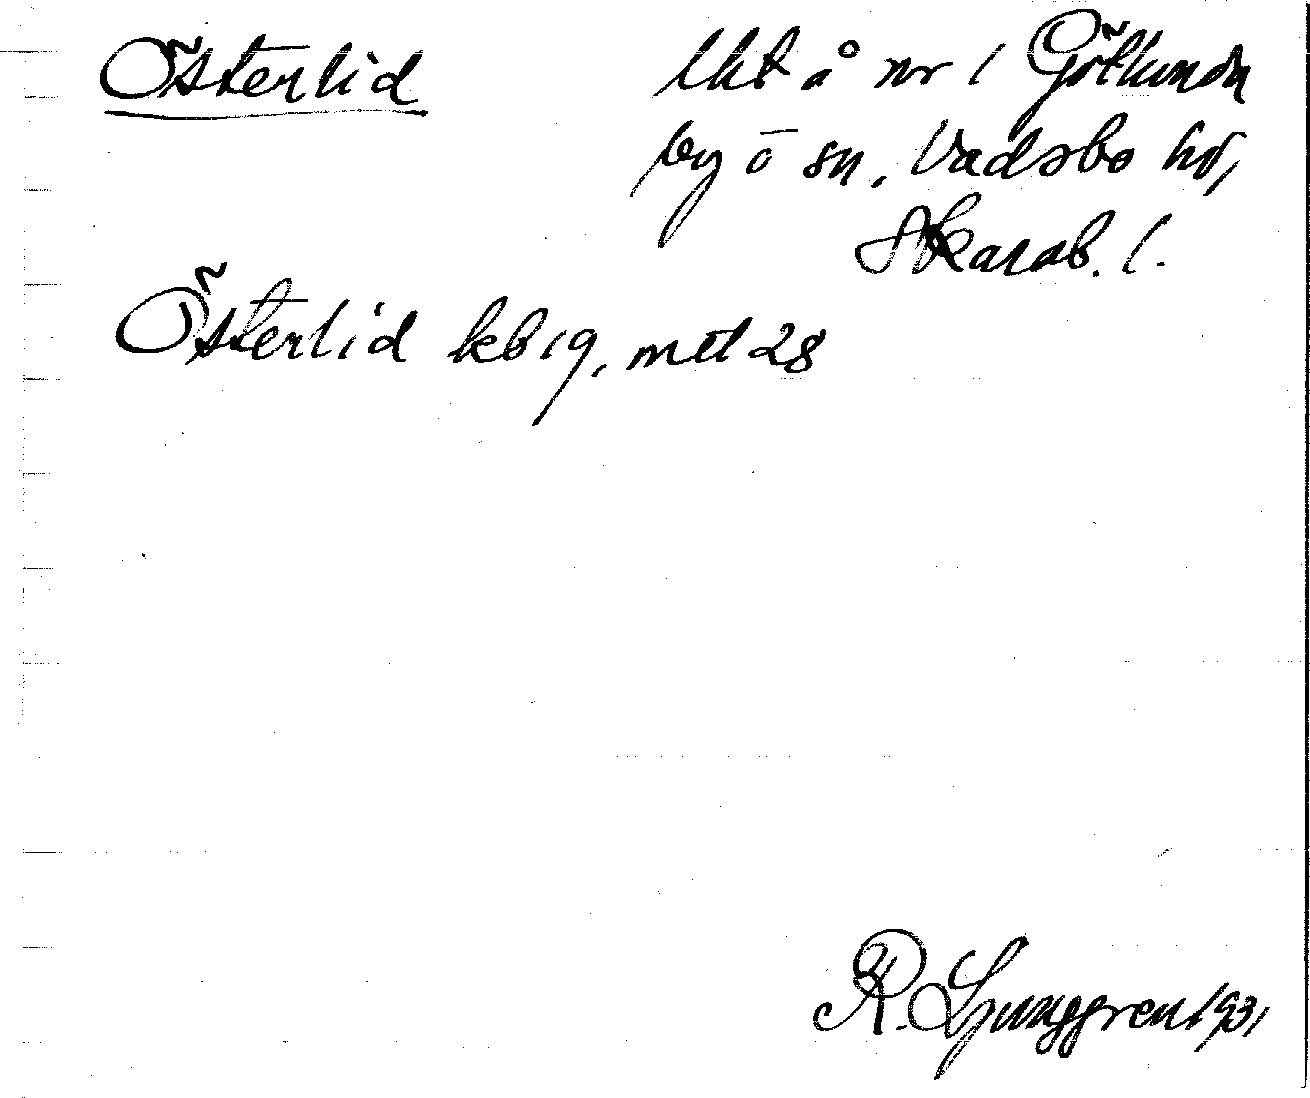 Österlid
lht å nr 1 Götlunda
by o sn, Vadsbo hd,
Skarab. l.
Österlid kb 19, mtl 28
R. Ljunggren 1931